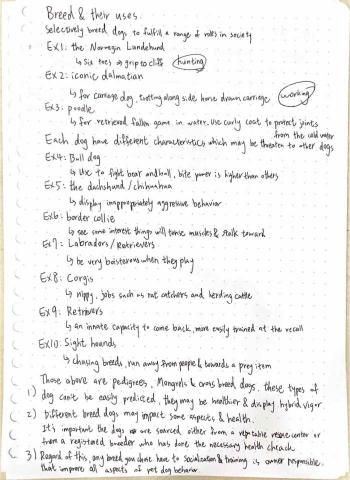 Breed & their uses
Selectively breed dogs to fulfill a range of roles in society
Ex1: the Norwegin Lundehund
↳ Six toes → grip to cliff (hunting)
Ex2: iconic dalmatian
↳ for carriage dog, trotting along side horse drawn carriege (working)
Ex3: poodle
↳ for retrieved fallen game in water. Use curly coat to protect joints
from the cold water
Each dog have different characteristics which may be threaten to other dogs
Ex4: Bull dog
↳ Use to fight bear and bull, bite power is higher than others
Ex5: the dachshund / chihuahua
↳ display inappropriately aggressive behavior
Ex6: border collie
↳ see some interest things will tense muscles & stalk toward
Ex7: Labradors / Retrievers
↳ be very boisterous when they play
Ex8: Corgis
↳ nippy, jobs such as rat catchers and herding cattle
Ex9: Retrivers
↳ an innate capacity to come back, more easily trained at the recall
Ex10: Sight hounds
↳ chasing breeds, run away from people & towards a prey item
Those above are pedigrees, Mongrels & cross bred dogs, these types of
1) dog can't be easily predicted, they may be healthier & display hybrid vigor
2) Different breed dogs may impact some aspects & health.
It's important the dogs are sourced either from a reputable rescue center or
from a registered breeder who has done the necessary health cheack.
3) Regard of this, any breed you chose have to socialisation & training is owner responsible
that improve all aspects of pet dog behavior.